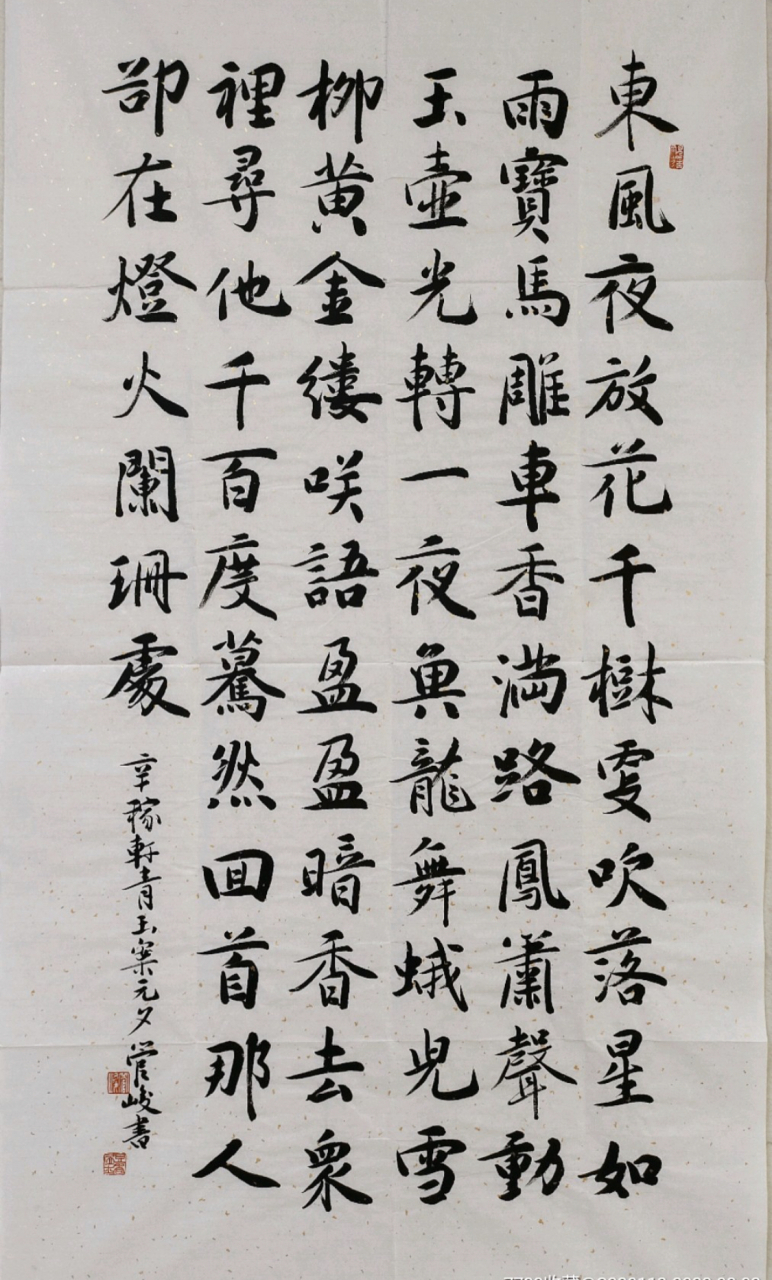 東風夜放花千樹更吹落星如
雨寶馬雕車香滿路鳳簫聲動
玉壺光轉一夜魚龍舞蛾兒雪
柳黃金縷咲語盈盈暗香去衆
裡尋他千百度驀然囬首那人
卻在燈火闌珊處
辛稼軒青玉案元夕 管峻書